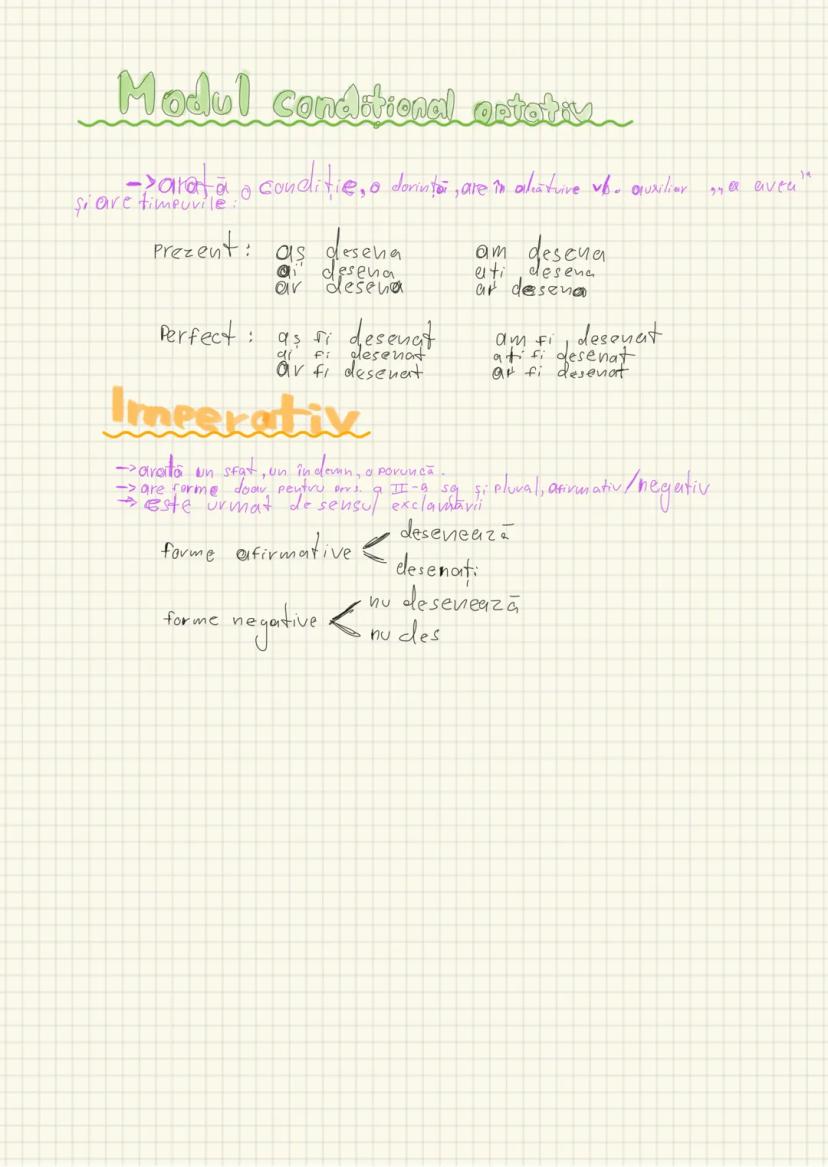 Modul condițional optativ
->arată o condiție, o dorință, are în alcătuire vb. auxiliar ,,a avea"
și are timpurile:
Prezent: aș desena am desena
ai desena ați desena
ar desena ar desena
Perfect: aș fi desenat am fi desenat
ai fi desenat ați fi desenat
ar fi desenat ar fi desenat
Imperativ
->arată un sfat, un îndemn, o poruncă.
->are forme doar pentru prs. a II-a sg și plural, afirmativ/negativ
-> este urmat de sensul exclamării
forme afirmative < desenează
desenați
forme negative < nu desenează
nu des